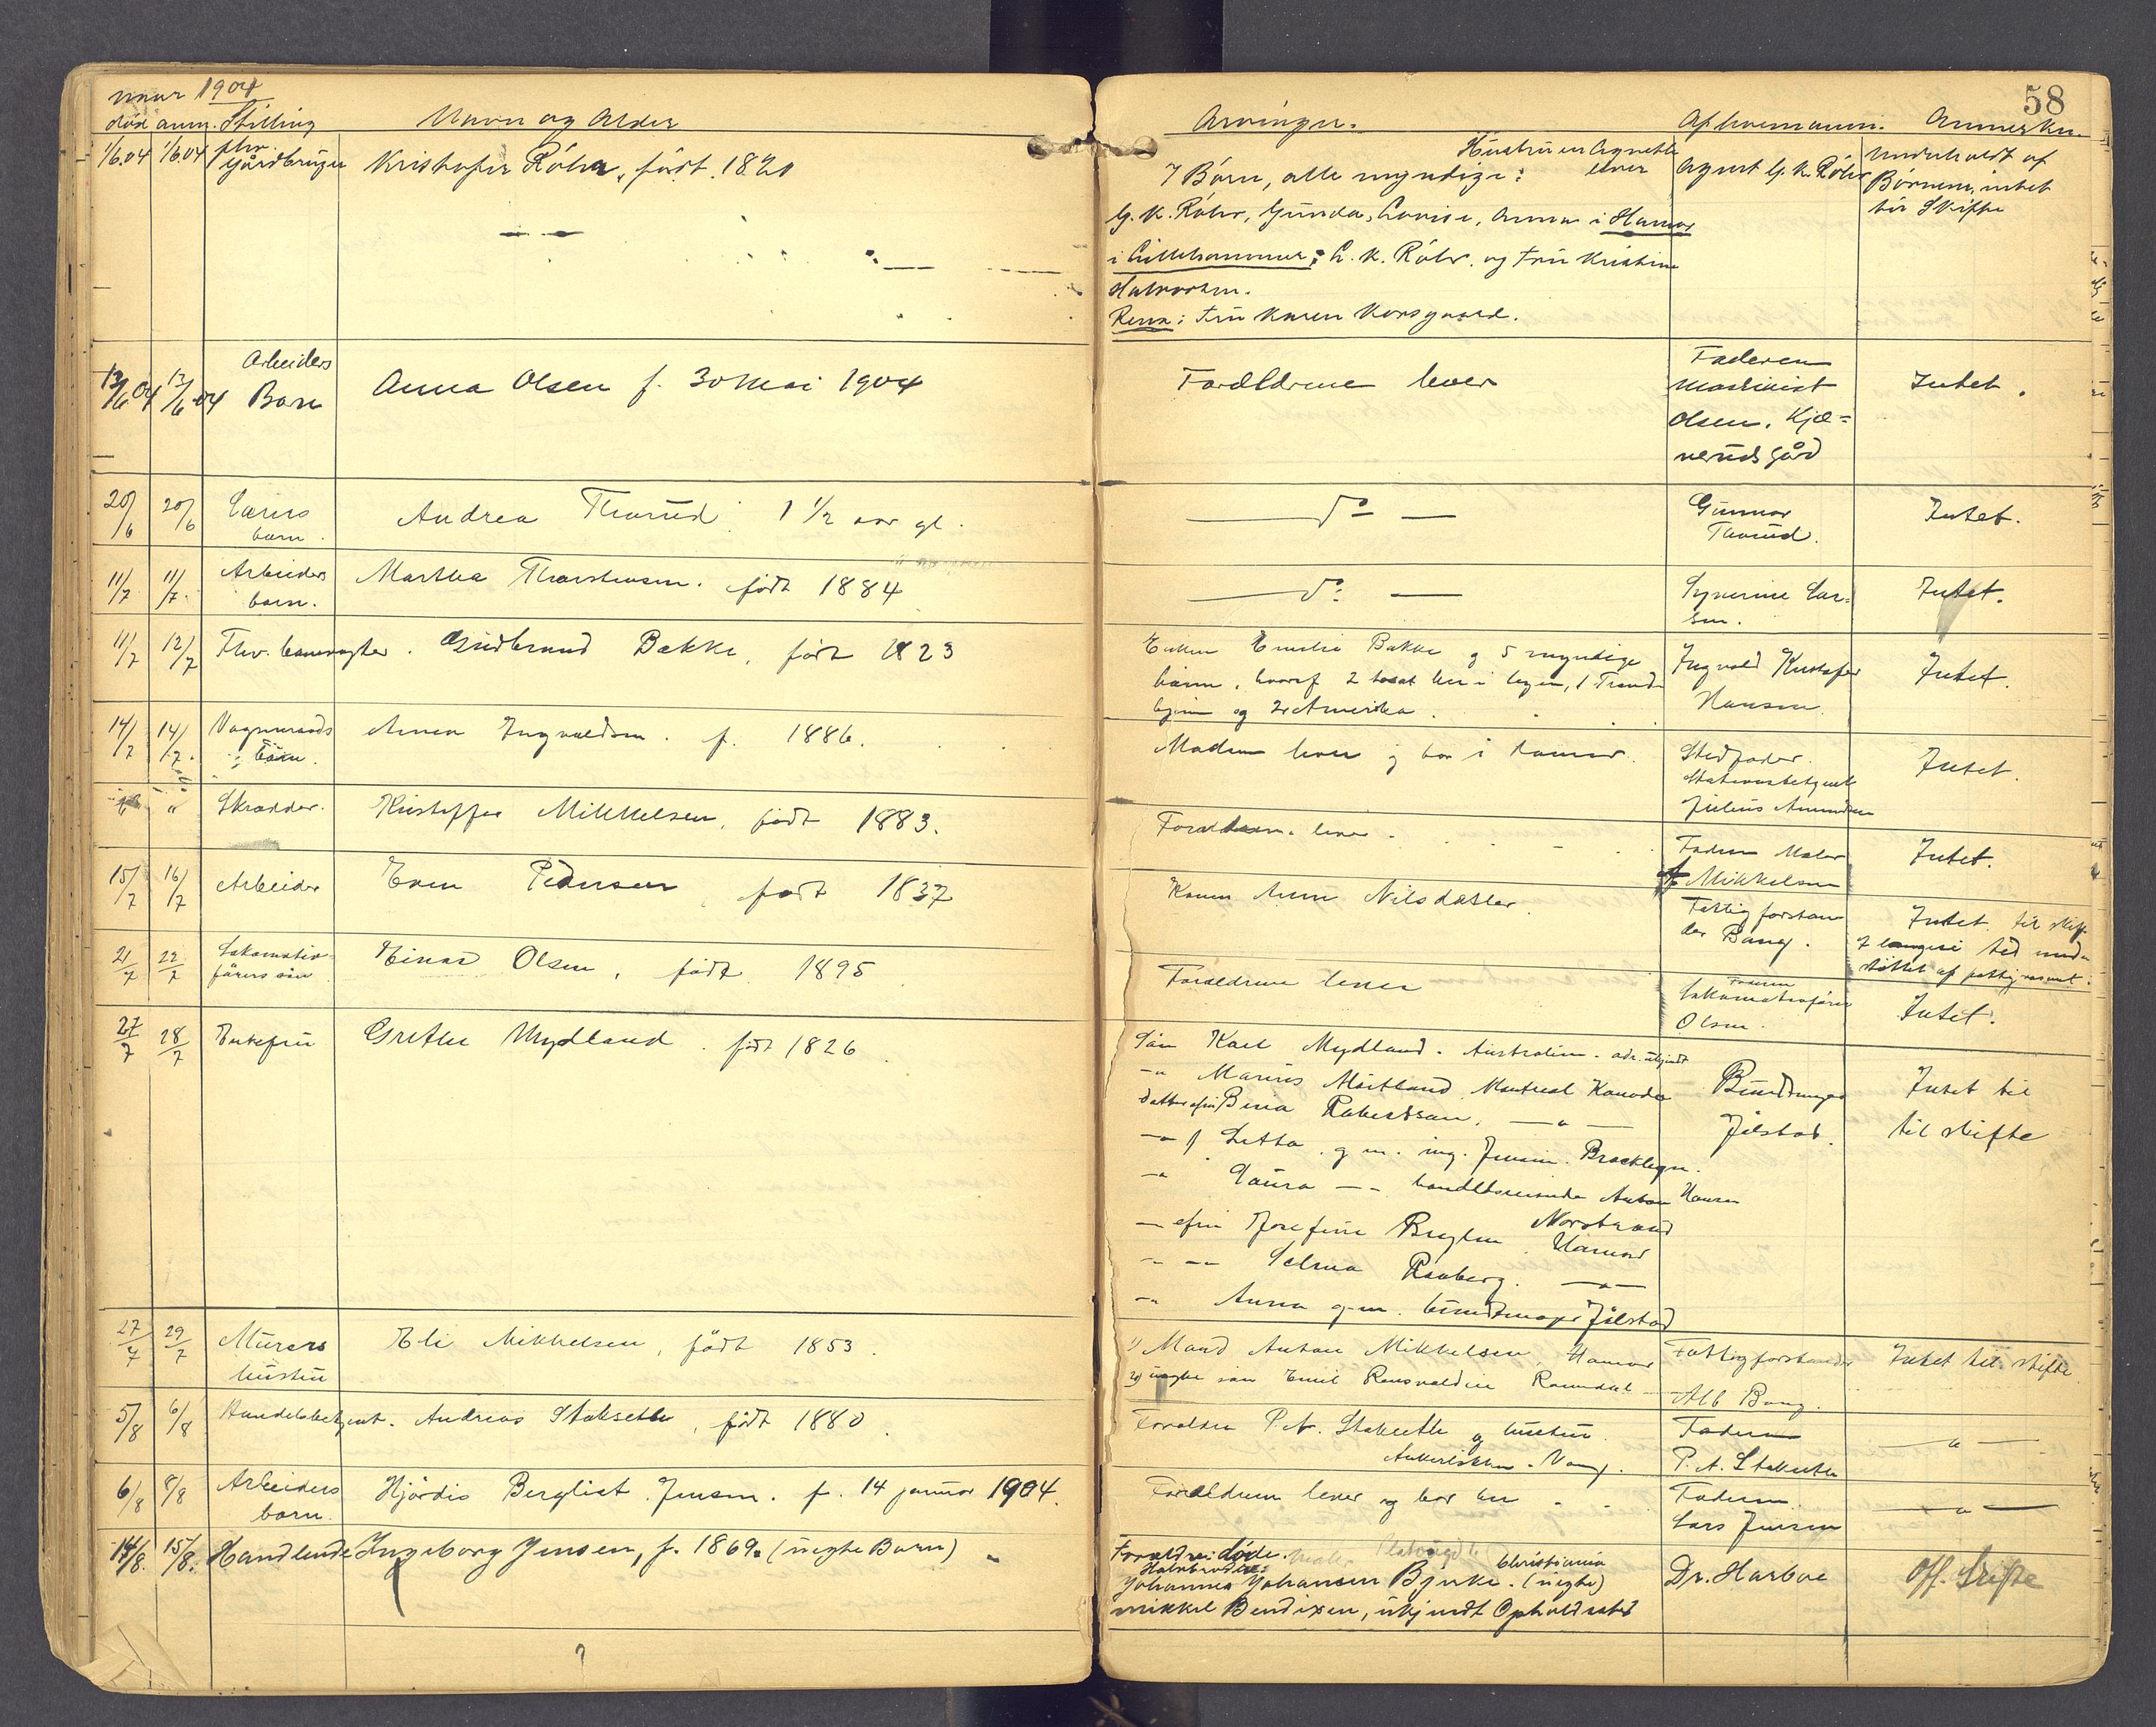 1904
58
død anm. Stilling Navn og Alder Arvinger. Anmerkn.
1/6.04 1/6.04 fhv. Gårdbruger Kristofer Röhr, født 1820
Hustruen Agnethe lever
7 Börn, alle myndige:
G. K. Röhr, Gunda, Lovise, Anna i Hamar
i Lillehammer: L. K. Röhr og Fru Kristine
Halvorsen.
Rena: Fru Karen Korsgaard.
Agent G. K. Röhr
Underholdt af
Börnene, intet
til Skifte
13/6 04 13/6 04 Arbeiders Barn Anna Olsen f. 30 Mai 1904
Forældrene lever
Faderen
Maskinist
Olsen, Kjæ-
nerudsgård
Intet.
20/6 20/6 barn. Andrea Thorud 1 1/2 aar gl.
— do —
Gunnar
Thorud.
Intet.
11/7 11/7. Arbeiders barn. Martha Thorstensen. født 1884
— do —
Syverine Lar-
sen.
Intet.
11/7 12/7 Fhv. banevogter. Gudbrand Bakke, født 1823
Enken Emelie Bakke og 5 myndige
børn, hvoraf 2 her i byen, 1 Trond-
hjem og 2 i Amerika.
Ingvald Kristofer
Hansen.
Intet.
14/7 14/7. Vognmands barn. Anna Ingvaldsen. f. 1886.
Moderen lever og bor i Hamar.
Stedfader.
Stationsbetjent
Julius Amundsen
Intet.
" Skrædder. Kristoffer Mikkelsen, født 1883.
Forældrene lever.
Faderen Maler
Mikkelsen
Intet.
15/7 16/7 Arbeider Even Pedersen, født 1837
Konen Anne Nilsdatter.
Fattigforstan-
der Bang.
Intet til skifte
længere tid under-
støttet af fattigvæsenet.
21/7 22/7 Lokomotiv-
førers søn Einar Olsen, født 1895
Forældrene lever
Faderen
Lokomotivfører
Olsen.
Intet.
27/7 28/7 Enkefru Grethe Mydland. født 1826.
Søn Karl Mydland. Australien. adr. ukjendt
—" Marius Mörtland, Montreal Kanada
Datter efru Bina Robertson. —"—
—" f. Letta. g. m. ing. Jensen. Brooklyn.
—" Laura —" handelsreisende Anton Hansen
Norstrand
— efru Josefine Hamar
—" —" Selma Raaberg. —"—
—" Anna g. m. buntmager Jølstad
Buntmager
Jølstad.
Intet til
til skifte
27/7 29/7 Murers hustru Eli Mikkelsen, født 1853.
1) Mand Anton Mikkelsen, Hamar
2) uægte søn Emil Romedal
Fattigforstander
Alb Bang.
Intet til skifte
5/8 6/8 Handelsbetjent. Andreas Stoksethe, født 1880.
Forældre P. A. Stoksethe og hustru.
Ankerløkken. Vang.
Faderen
P. A. Stoksethe
— " —
6/8 8/8 Arbeiders barn. Hjørdis Bergliot Jensen. f. 14 januar 1904.
Forældrene lever og bor her.
Faderen
Lars Jensen
— " —
14/8. 15/8. Handlende Ingeborg Jensen, f. 1869. (uægte Barn)
Forældrene døde.
Halvbrødre: Christiania
Johannes Johansen Bjerke. (uægte)
Mikkel Bendixen, ukjendt Opholdssted
Dr. Harboe
Off. Skifte